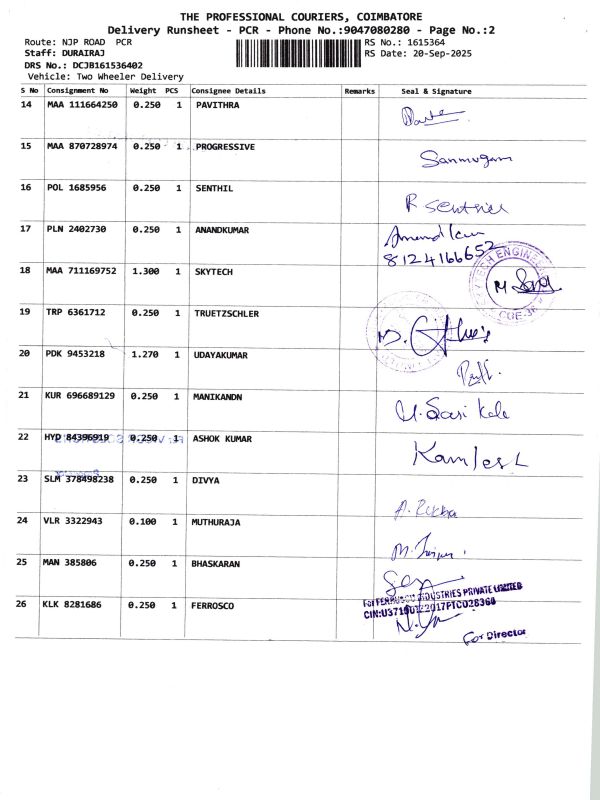 THE PROFESSIONAL COURIERS, COIMBATORE
Delivery Runsheet - PCR - Phone No.:9047080280 - Page No.:2
Route: NJP ROAD PCR
RS No.: 1615364
Staff: DURAIRAJ
RS Date: 20-Sep-2025
DRS No.: DCJB161536402
Vehicle: Two Wheeler Delivery
S No Consignment No Weight PCS Consignee Details Remarks Seal & Signature
14 MAA 111664250 0.250 1 PAVITHRA
15 MAA 870728974 0.250 1 PROGRESSIVE Sanmugam
16 POL 1685956 0.250 1 SENTHIL R Senthil
17 PLN 2402730 0.250 1 ANANDKUMAR
8124166652
18 MAA 711169752 1.300 1 SKYTECH
19 TRP 6361712 0.250 1 TRUETZSCHLER
20 PDK 9453218 1.270 1 UDAYAKUMAR
21 KUR 696689129 0.250 1 MANIKANDN U. Sasi kala
22 HYD 84396919 0.250 1 ASHOK KUMAR Kamlesh
23 SLM 378498238 0.250 1 DIVYA
24 VLR 3322943 0.100 1 MUTHURAJA
25 MAN 385806 0.250 1 BHASKARAN
26 KLK 8281686 0.250 1 FERROSCO
INDUSTRIES PRIVATE LIMITED
For Director